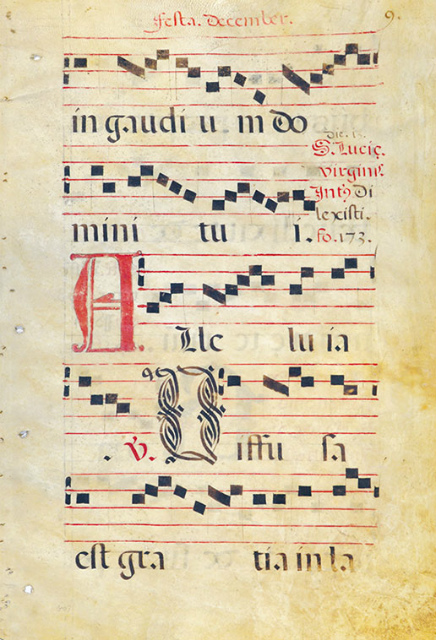 festa. December.
9.
in gaudi u. m do
die. 13.
S. Lucię.
virginis.
Intꝫ Di
lexisti.
fo. 173.
mini tu i.
A lle lu ia
. V. Diffu sa
est gra tia in la